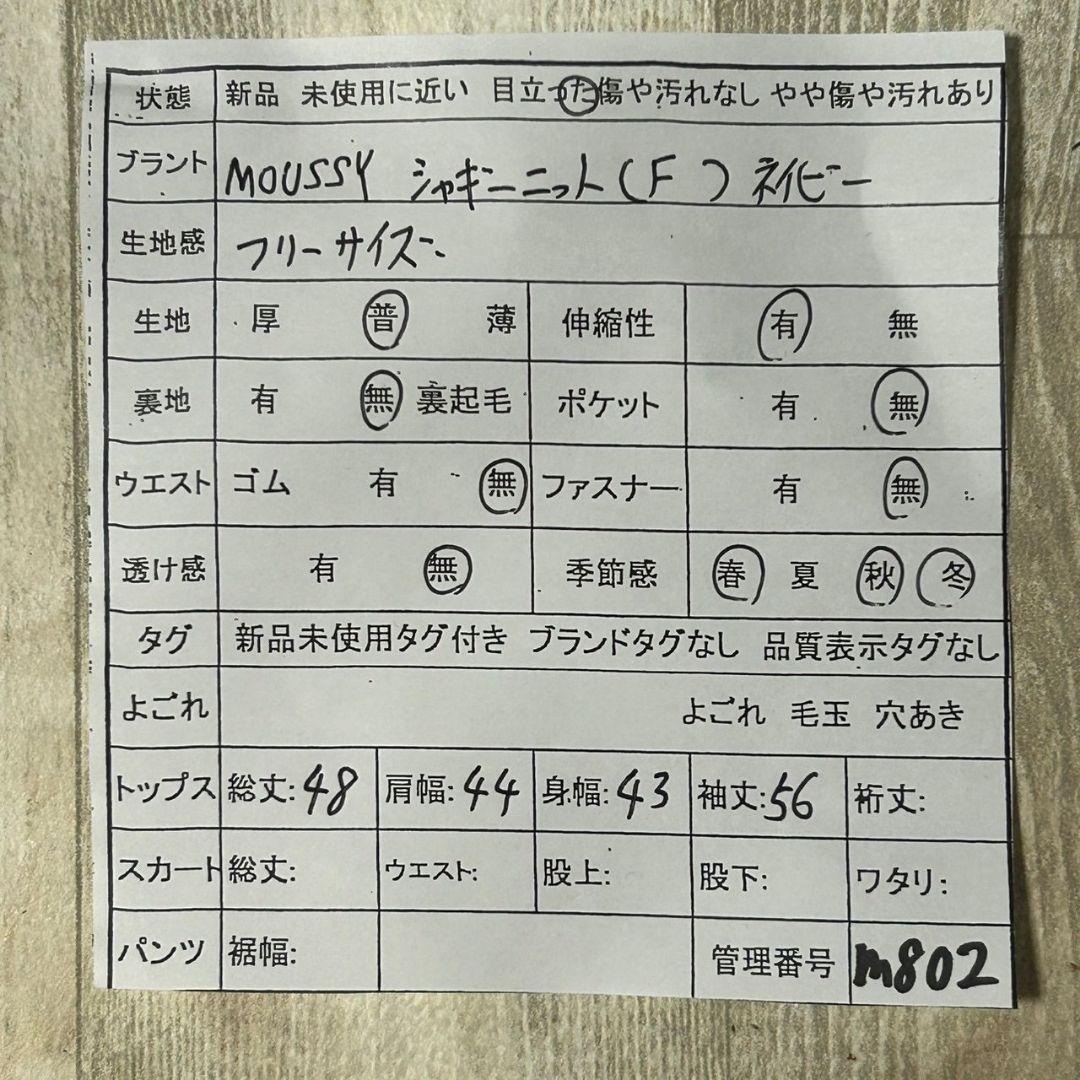 状態 新品 未使用に近い 目立った傷や汚れなし やや傷や汚れあり
ブラント MOUSSY シャギーニット(F) ネイビー
生地感 フリーサイズ
生地 厚 普 薄 伸縮性 有 無
裏地 有 無 裏起毛 ポケット 有 無
ウエスト ゴム 有 無 ファスナー 有 無
透け感 有 無 季節感 春 夏 秋 冬
タグ 新品未使用タグ付き ブランドタグなし 品質表示タグなし
よごれ よごれ 毛玉 穴あき
トップス 総丈:48 肩幅:44 身幅:43 袖丈:56 裄丈:
スカート 総丈: ウエスト: 股上: 股下: ワタリ:
パンツ 裾幅: 管理番号 m802